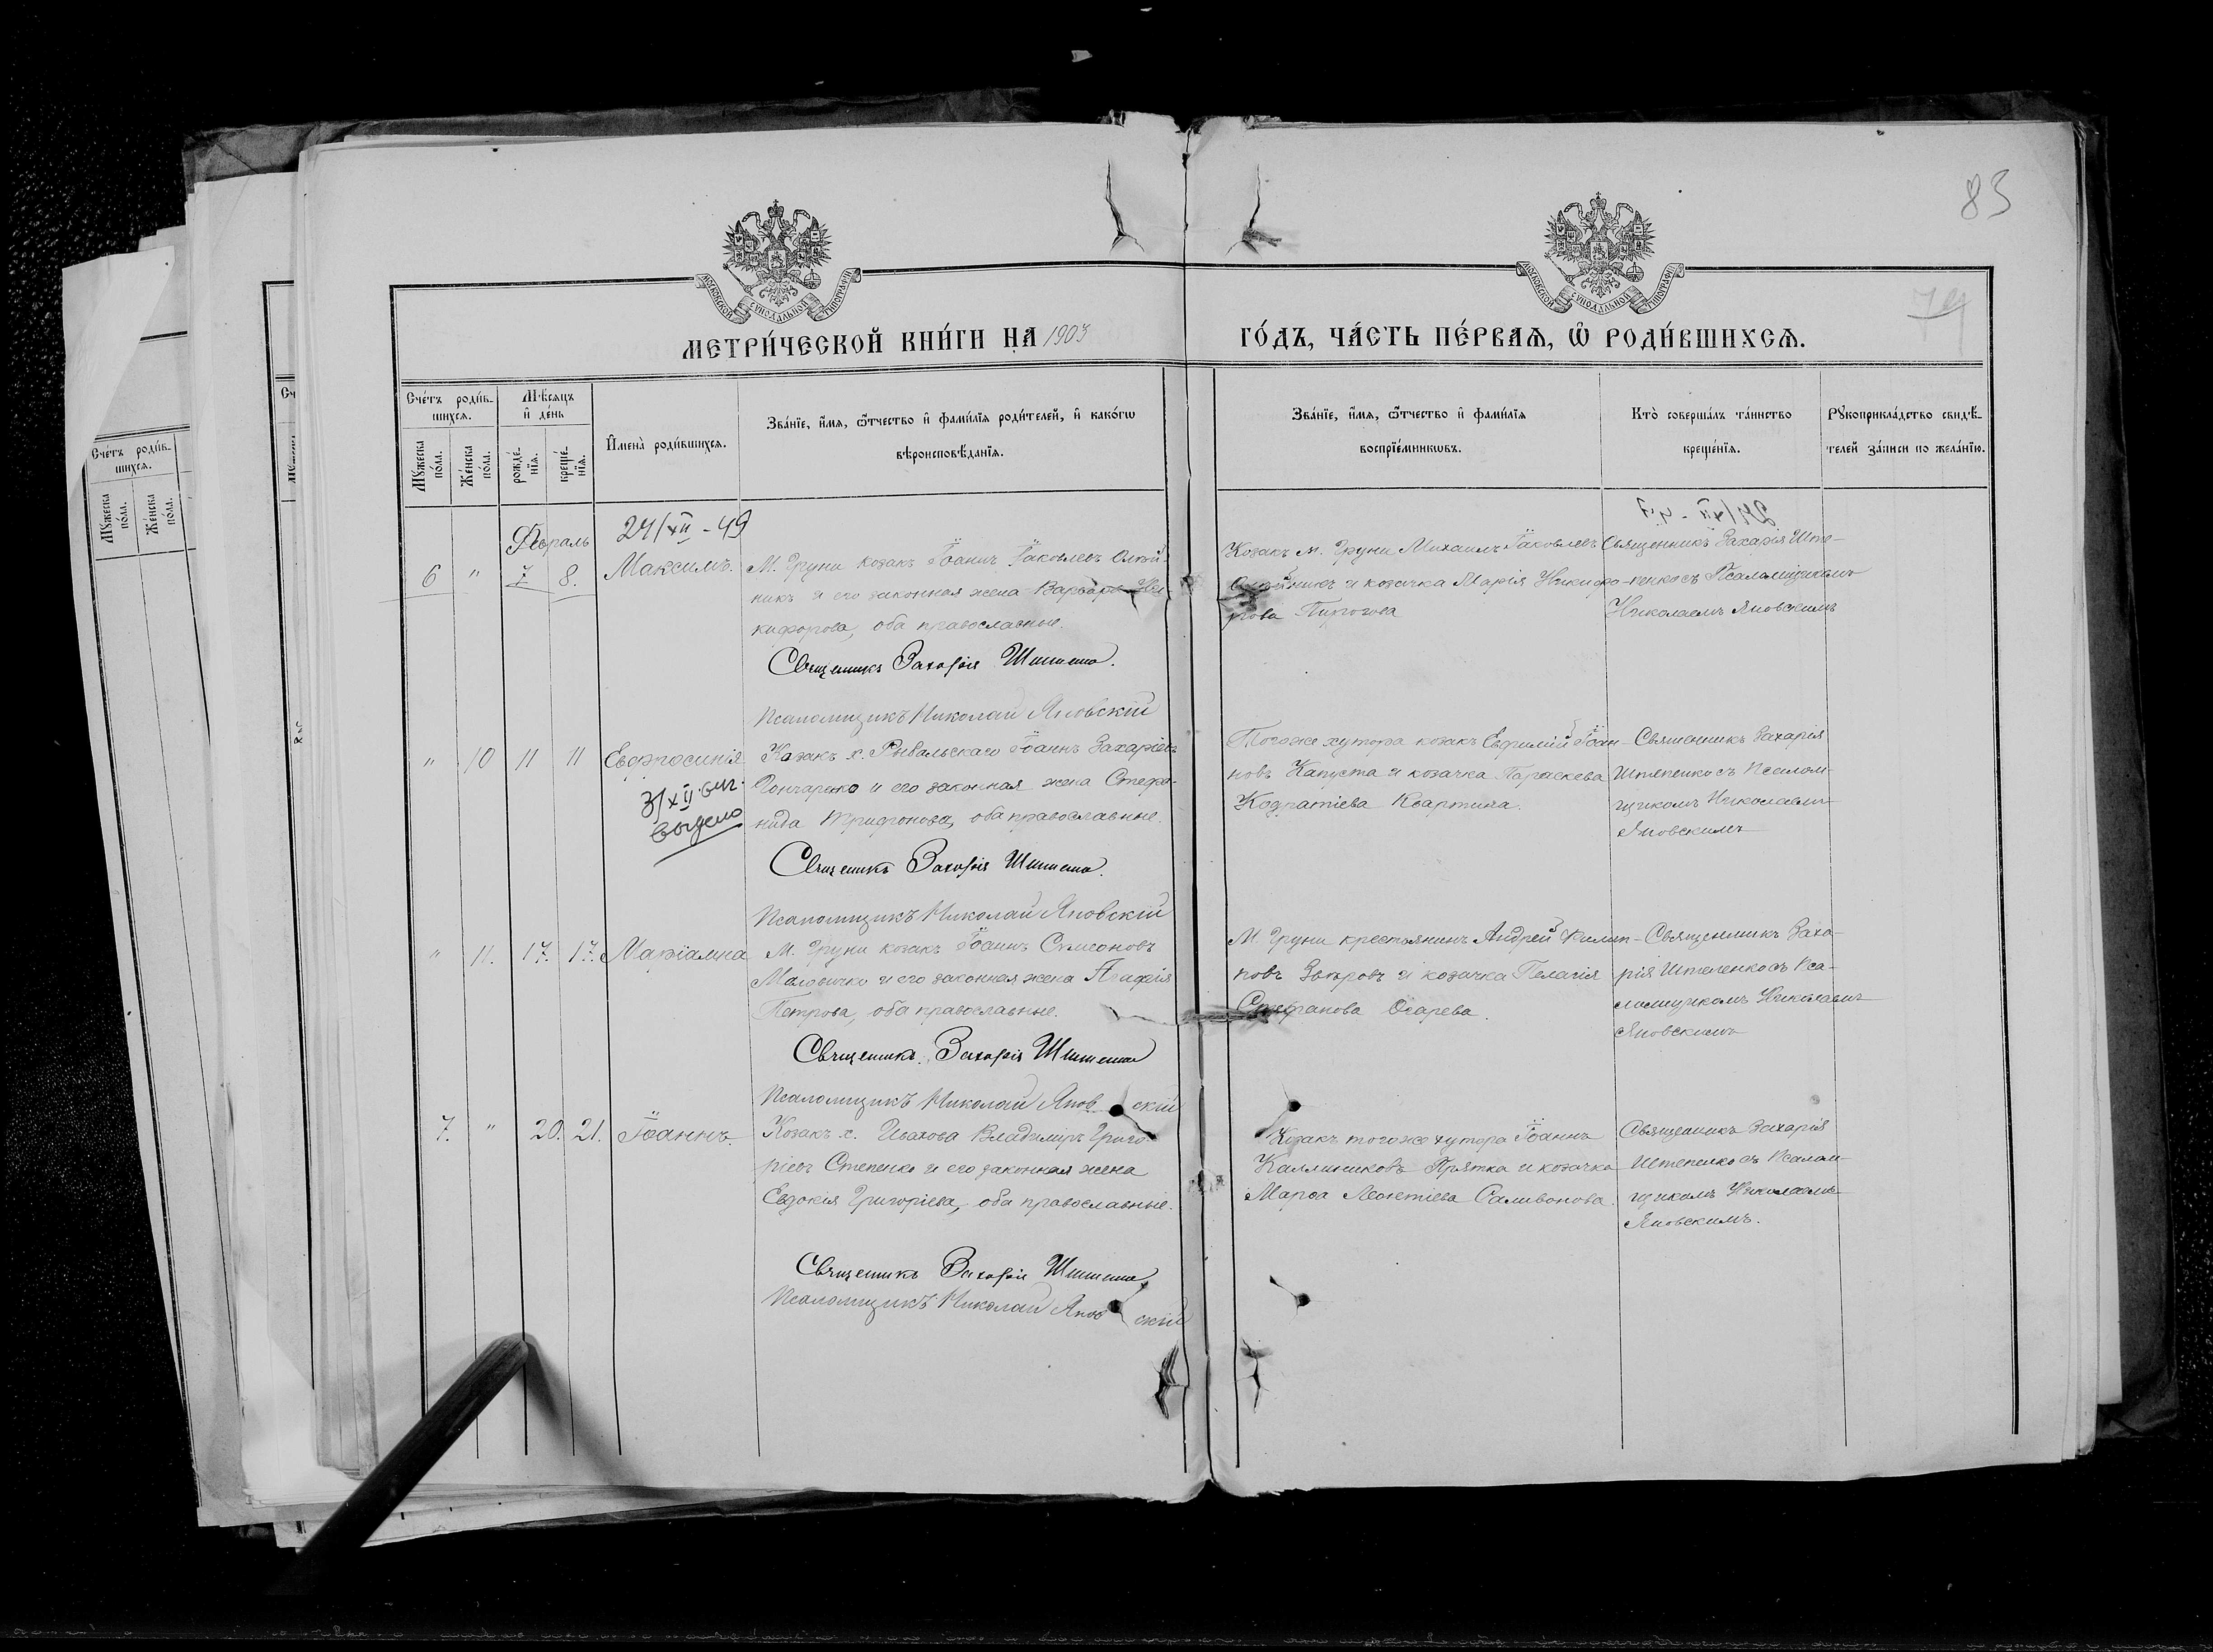 83
74
МОСКОВСКОЙ СѴНОДАЛЬНОЙ ТИПОГРАФІИ
МОСКОВСКОЙ СѴНОДАЛЬНОЙ ТИПОГРАФІИ
МЕТРИ́ЧЕСКОЙ КНИ́ГИ НА 1903
ГО́ДЪ, ЧА́СТЬ ПЕ́РВАѦ, Ѿ РОДИ́ВШИХСѦ.
Сче́тъ роди́в-
шихсѧ.
Мѣ́сѧцъ
и҆ де́нь
Мꙋжеска по́ла.
Же́нска по́ла.
рожде́-
нїѧ.
креще́-
нїѧ.
И҆мена̀ роди́вшихсѧ.
Зва́нїе, и҆́мѧ, ѻ҆́тчество и҆ фами́лїѧ роди́телей, и҆ како́гѡ
вѣроисповѣ́данїѧ.
Зва́нїе, и҆́мѧ, ѻ҆́тчество и҆ фами́лїѧ
воспрїе́мникѡвъ.
Кто̀ соверша́лъ та́инство
креще́нїѧ.
Рꙋкоприкла́дство свидѣ́-
телей за́писи по жела́нїю.
Сче́тъ роди́в-
шихсѧ.
Мꙋжеска
по́ла.
Же́нска
по́ла.
Февраль
24/XII - 49
6 " 7 8. Максимъ.
М. Груни козакъ Іоаннъ Іаковлевъ Олѣй-
никъ и его законная жена Варвара Ни-
кифорова, оба православные.
Священникъ Захарія Штепенко.
Псаломщикъ Николай Яновскій
Козакъ м. Груни Михаилъ Іаковлевъ
Олѣйникъ и козачка Марія Никифо-
рова Пирогова
Священникъ Захарія Ште-
пенко съ Псаломщикомъ
Николаемъ Яновскимъ
" 10 11 11 Евфросинія
31/XII
выдено
Козакъ х. Рыбальскаго Іоаннъ Захаріевъ
Гончаренко и его законная жена Стефа-
нида Трифонова, оба православные.
Священникъ Захарія Штепенко.
Псаломщикъ Николай Яновскій
Тогоже хутора козакъ Евфимій Іоан-
новъ Капуста и козачка Параскева
Кодратіева Квартина.
Священникъ Захарія
Штепенко съ Псалом-
щикомъ Николаемъ
Яновскимъ
" 11. 17. 17. Маріамна
М. Груни козакъ Іоаннъ Симеоновъ
Маловичко и его законная жена Агафія
Петрова, оба православные.
Священникъ Захарія Штепенко
Псаломщикъ Николай Яновскій
М. Груни крестьянинъ Андрей Филип-
повъ Звѣровъ и козачка Пелагія
Стефанова Огарева.
Священникъ Заха-
рія Штепенко съ Пса-
ломщикомъ Николаемъ
Яновскимъ
7. " 20. 21. Іоаннъ.
Козакъ х. Ивахова Владиміръ Григо-
ріевъ Степенко и его законная жена
Евдокія Григоріева, оба православные.
Священникъ Захарія Штепенко
Псаломщикъ Николай Яновскій
Козакъ тогоже хутора Іоаннъ
Каллиниковъ Прятка и козачка
Марѳа Леонтіева Саливонова.
Священникъ Захарія
Штепенко съ Псалом-
щикомъ Николаемъ
Яновскимъ.